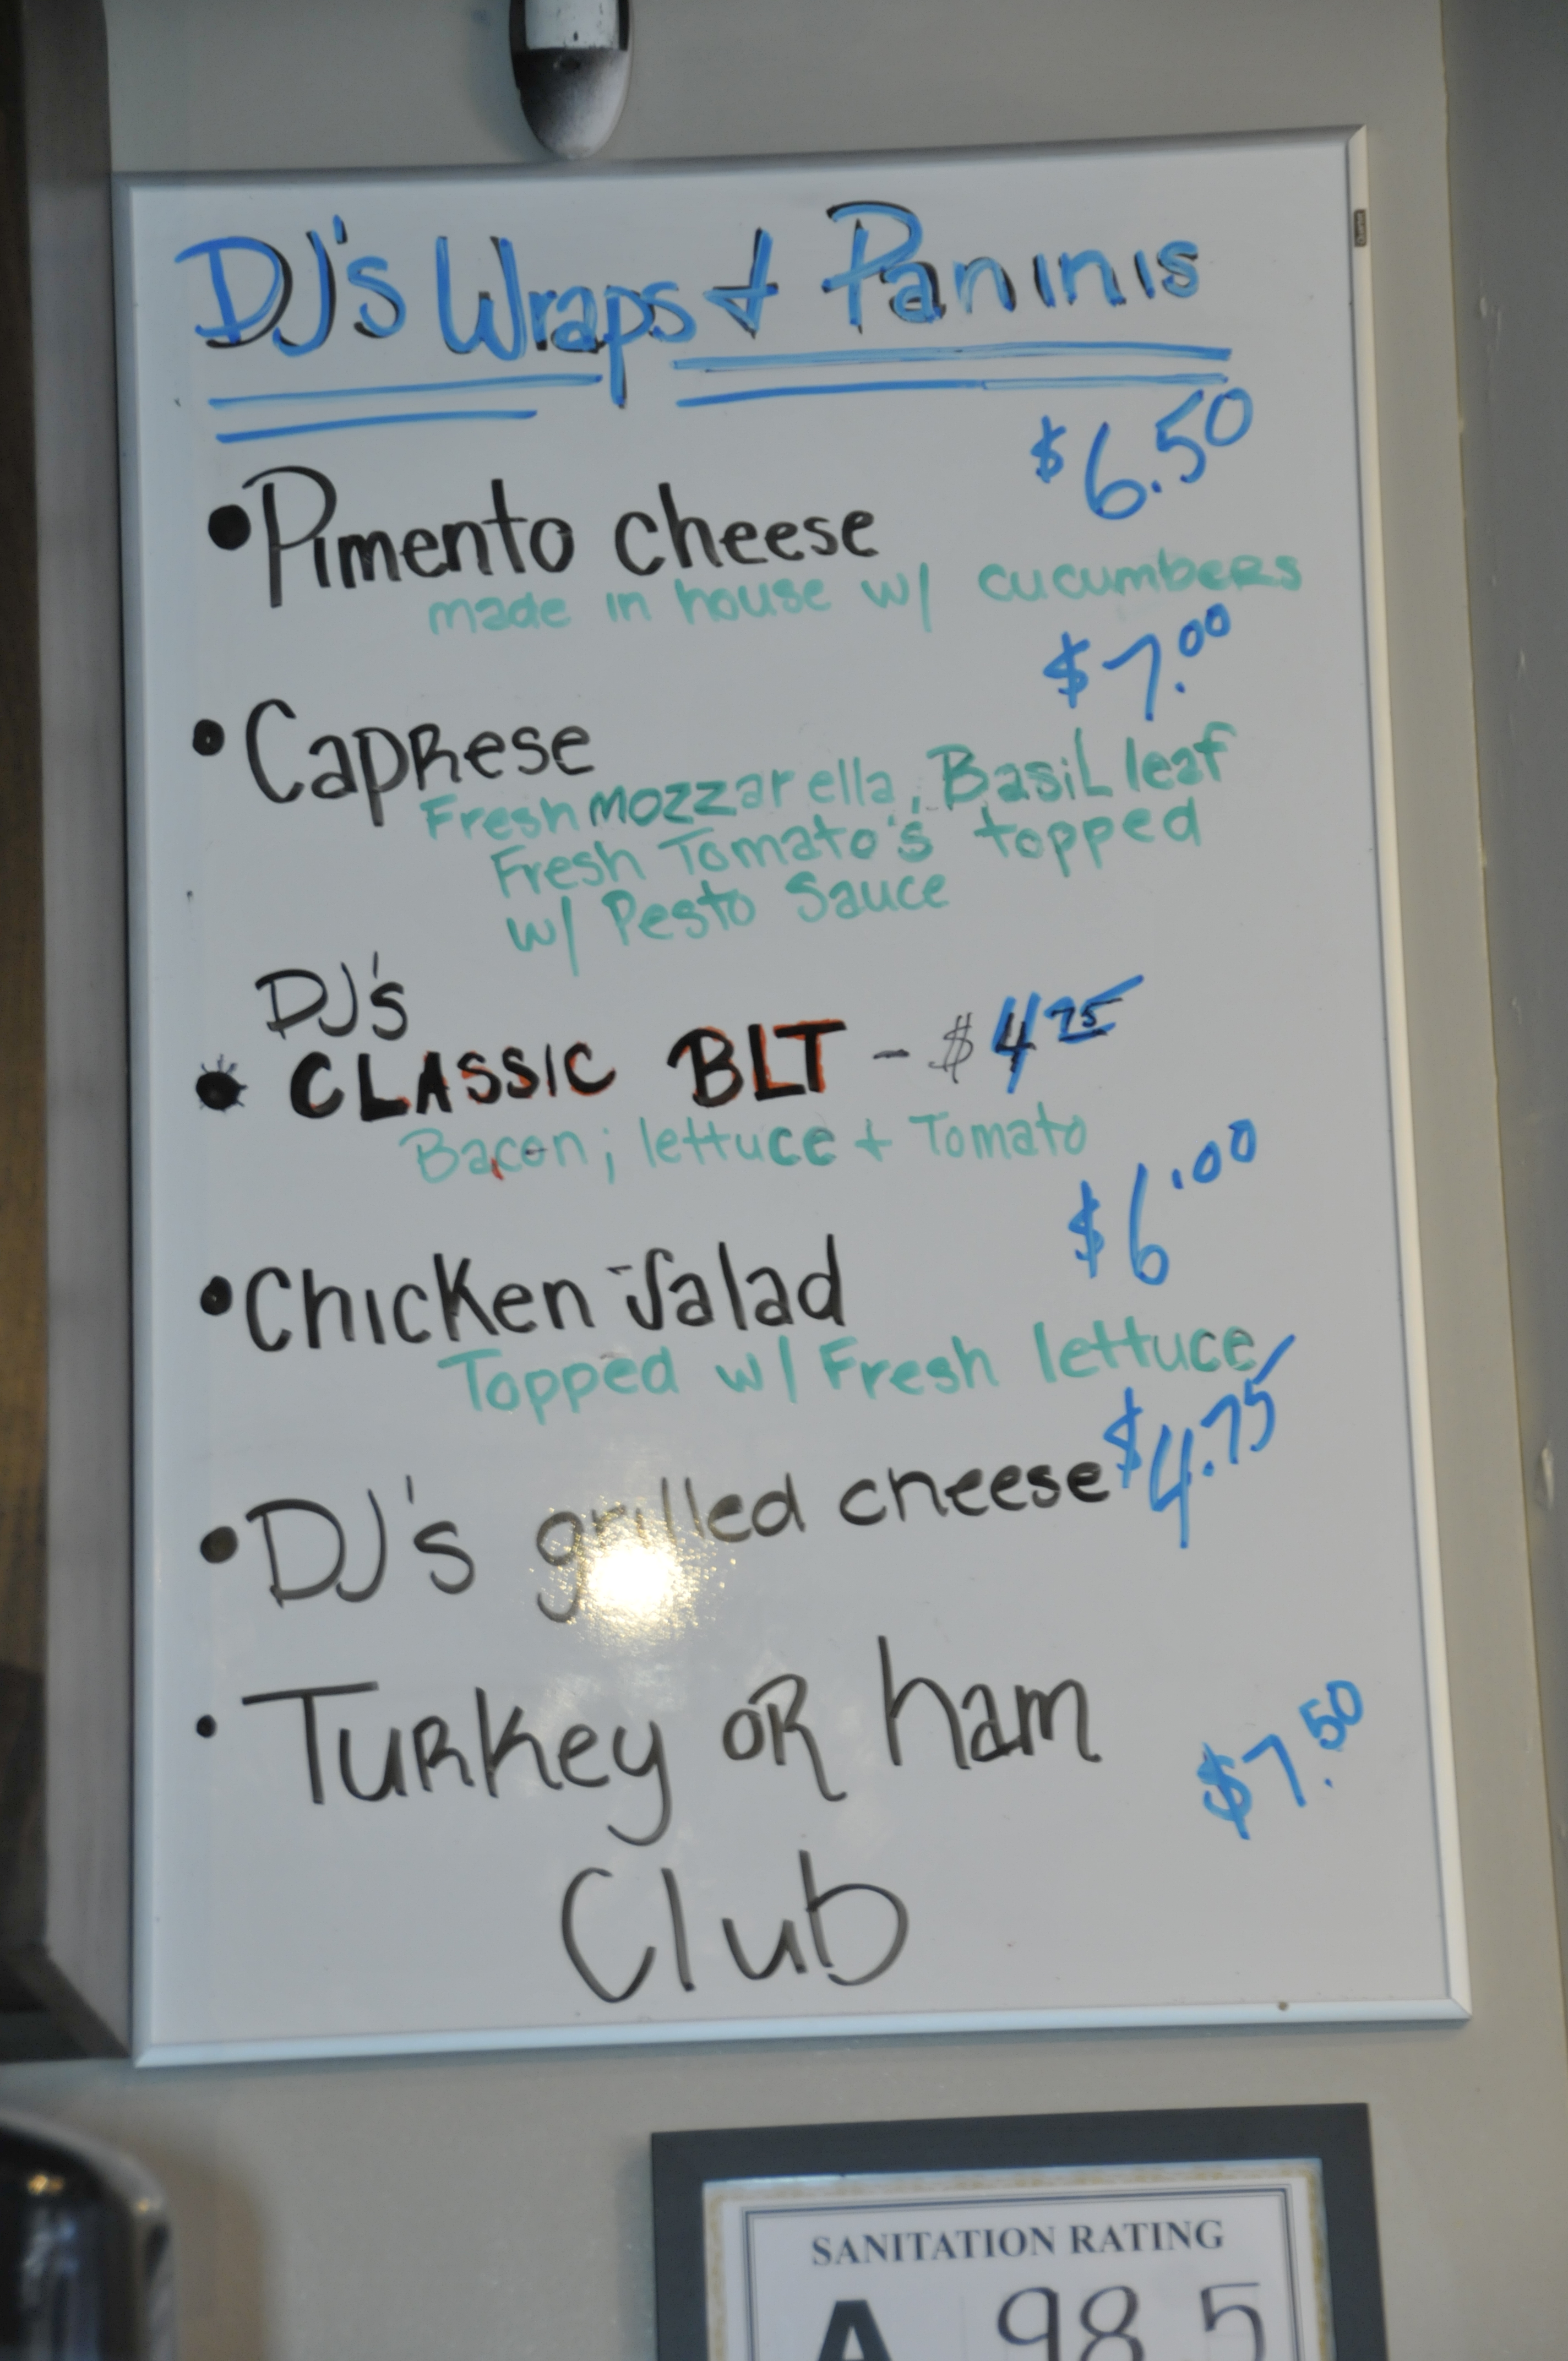 DJ's Wraps & Paninis
$6.50
• Pimento cheese
made in house w/ cucumbers
$7.00
• Caprese
Fresh mozzarella, Basil leaf
Fresh Tomato's topped
w/ Pesto Sauce
DJ's
• CLASSIC BLT - $4 75
Bacon; lettuce + Tomato
$6.00
• Chicken Salad
Topped w/ Fresh lettuce
• DJ's grilled cheese $4.75
• Turkey OR ham
$7.50
Club
SANITATION RATING
A 98.5